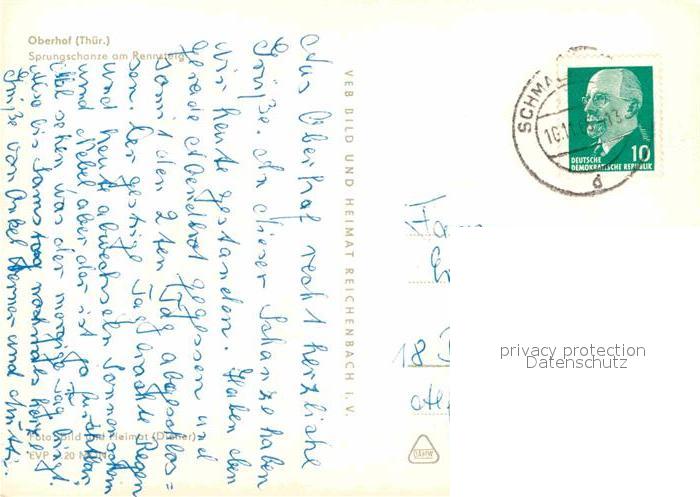 Oberhof (Thür.)
Sprungschanze am Rennsteig
Aus Oberhof recht herzliche
Grüße. An dieser Schanze haben
wir heute gestanden. Haben den
gerade Abendbrot gegessen und
somit den 2ten Tag abgeschlos=
sen. Der gestrige Tag brachte Regen
und heute abwechseln Sonnenschein
und Nebel, aber der ist ja furchtbar.
Mal sehen was der morgige Tag bringt.
Also bis Samstag nochmals herzl.
Grüße von Onkel Werner und
VEB BILD UND HEIMAT REICHENBACH I. V.
Foto: Bild und Heimat (Dröner)
EVP 20
SCHMA
10.11.6
DEUTSCHE
DEMOKRATISCHE REPUBLIK
10
d
Fam
18
privacy protection
Datenschutz